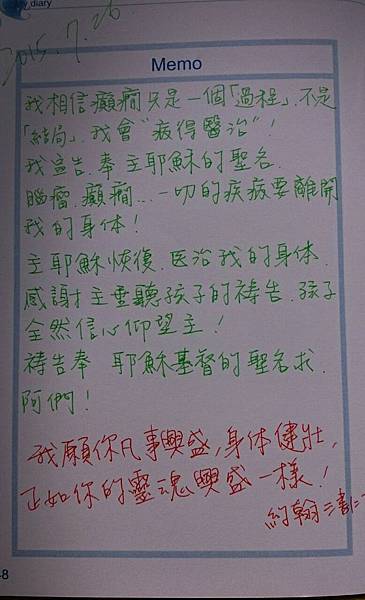 y diary
2015.7.26
Memo
我相信癲癇只是一個「過程」,不是
「結局」.我會"病得醫治"!
我宣告.奉主耶穌的聖名.
腦瘤.癲癇...一切的疾病要離開
我的身体!
主耶穌恢復.医治我的身体.
感謝主垂聽孩子的禱告.孩子
全然信心仰望主!
禱告奉 耶穌基督的聖名求.
阿們!
我願你凡事興盛,身体健壯,
正如你的靈魂興盛一樣!
約翰三書
48